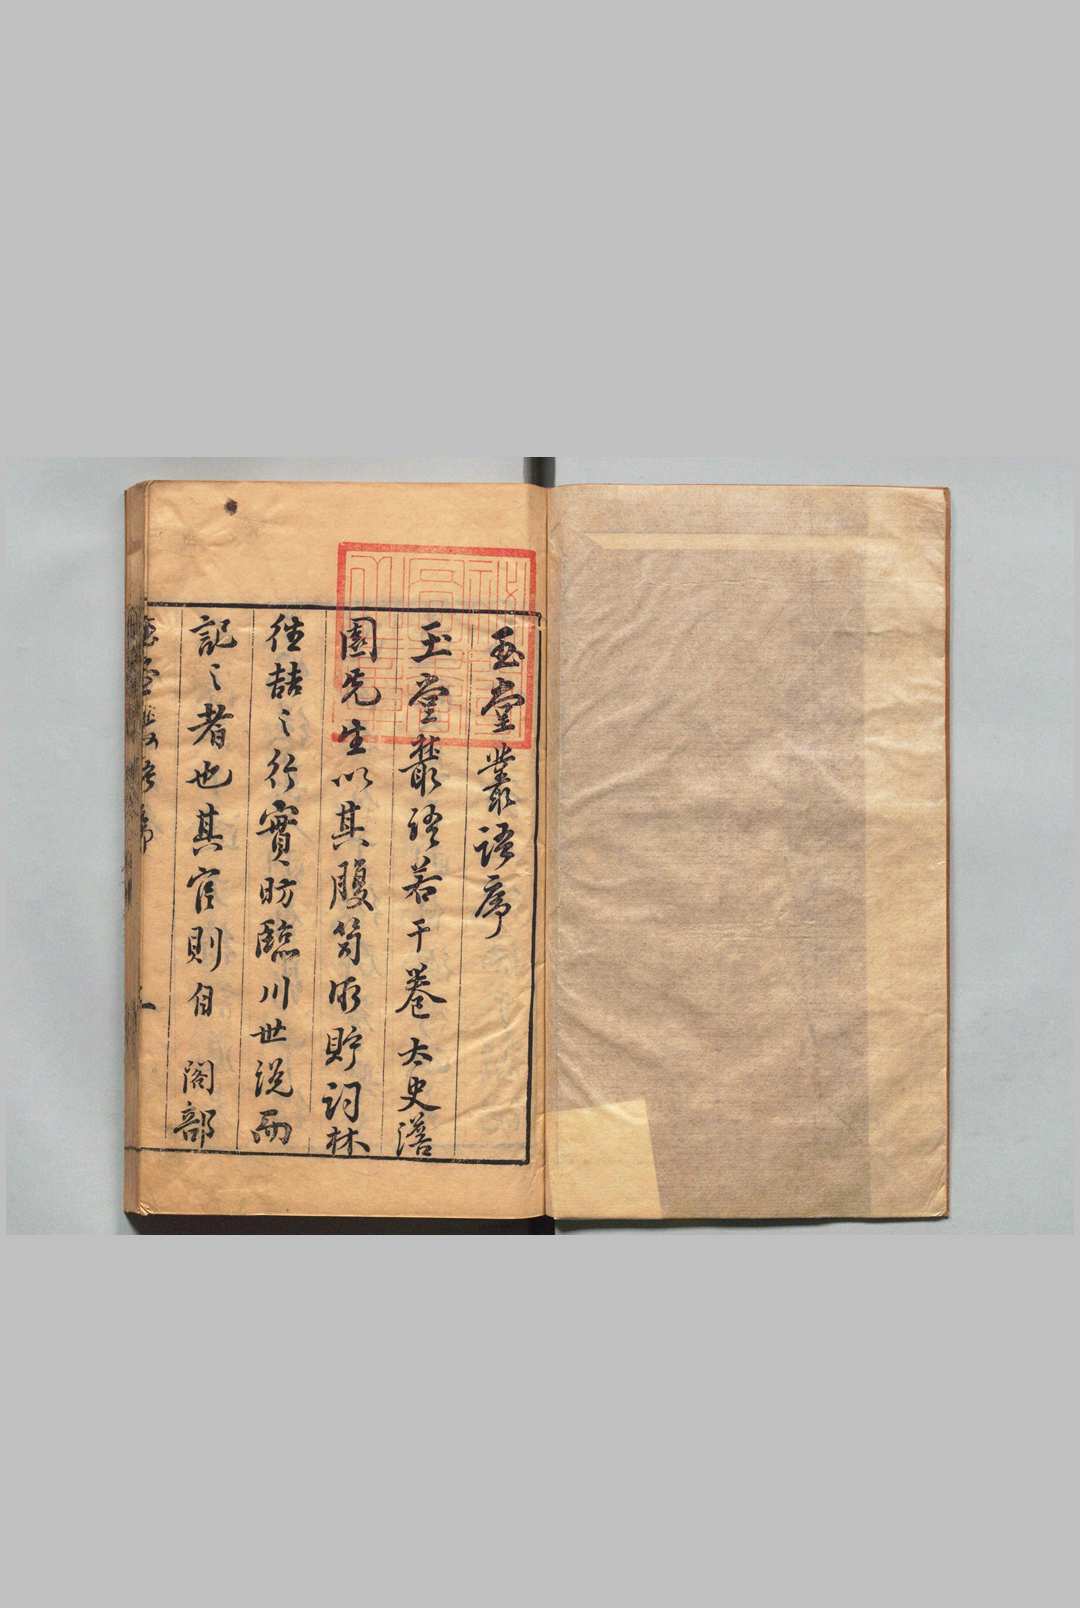 玉堂叢語序
玉堂叢語若干卷太史澹
園先生以其腹笥所貯詞林
徃喆之行實昉臨川世説而
記之者也其官則自　閣部